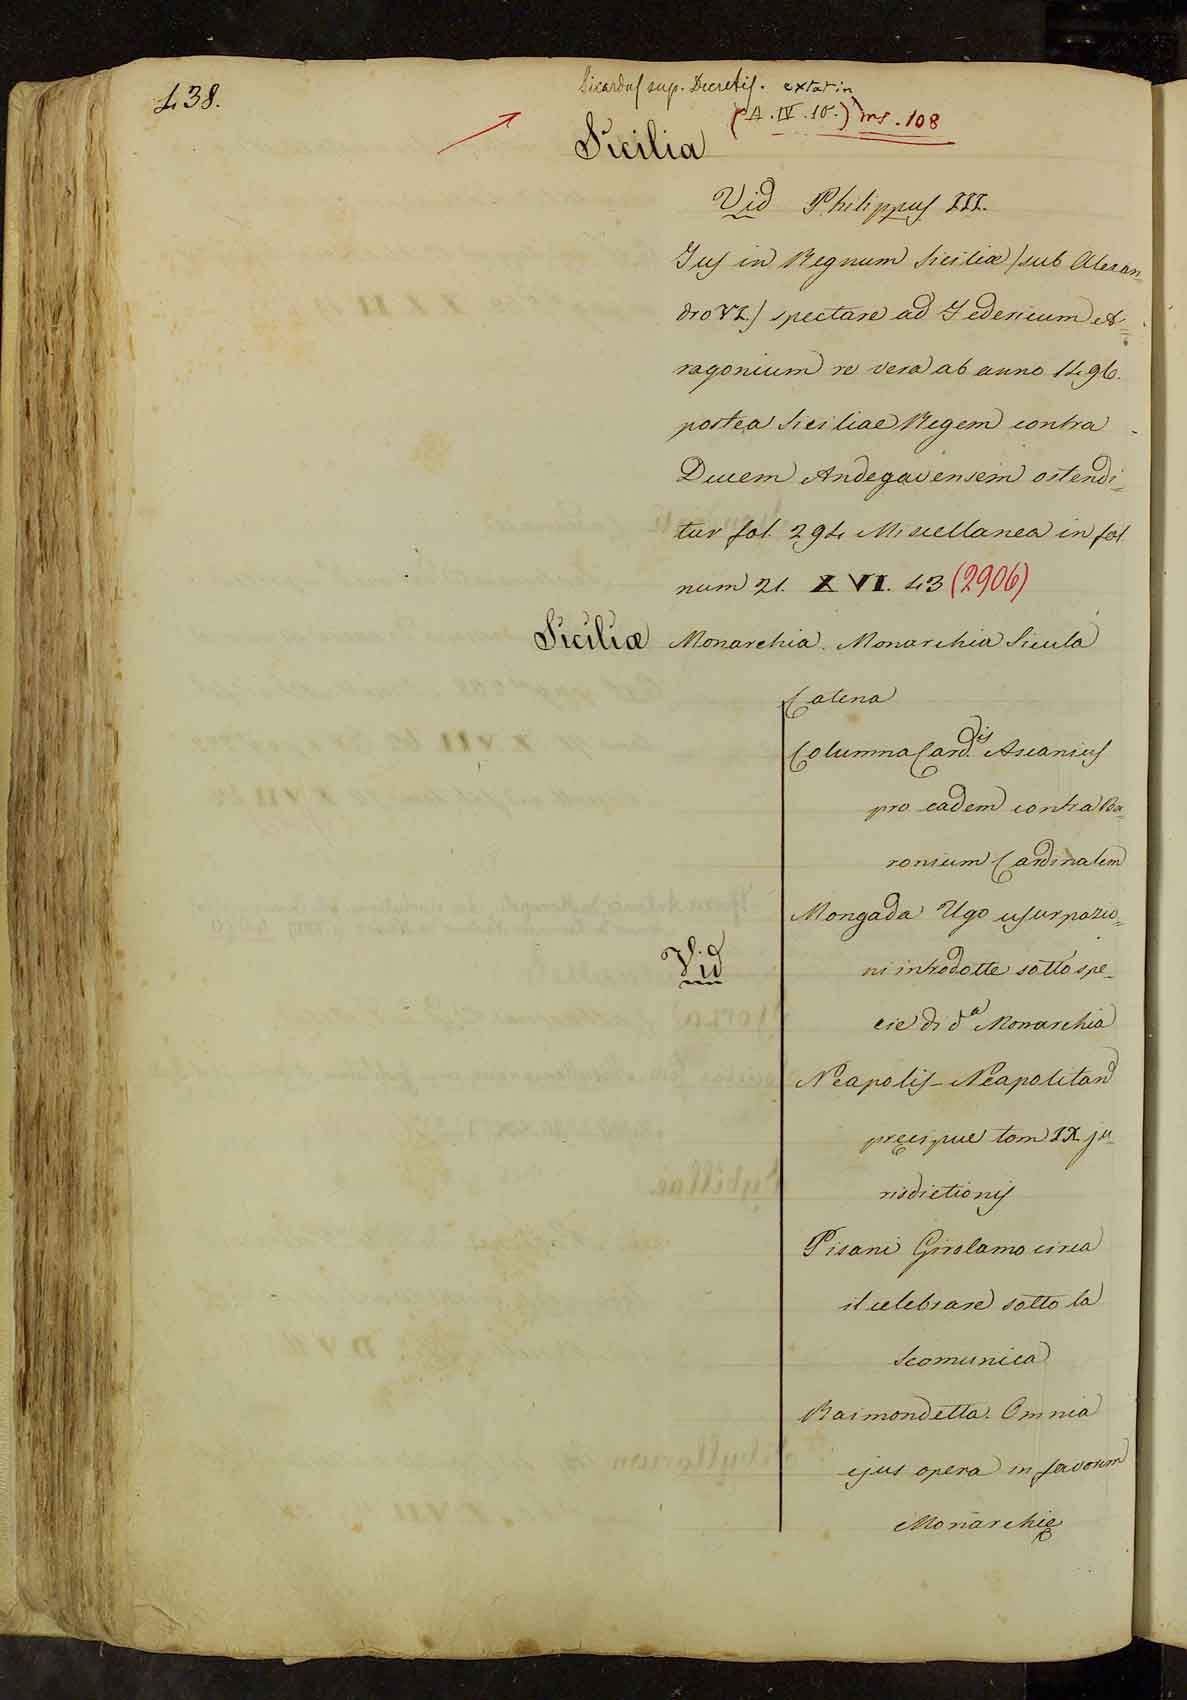 438.
Sicardus sup. Decretis. extat in
(A. IV. 10.) ms. 108
Sicilia
Vid Philippus III.
Jus in Regnum Siciliæ (sub Alexan-
dro VI.) spectare ad Federicum A=
ragonium re vera ab anno 1496.
postea Siciliae Regem contra
Ducem Andegavensem ostendi-
tur fol. 294 Miscellanea in fol.
num 21. XVI. 43 (2906)
Siciliæ Monarchia. Monarchia Sicula
Catena
Columna Card.is Ascanius
pro eadem contra Ba-
ronium Cardinalem
Mongada Ugo usurpazio-
Vid
ni introdotte sotto spe-
cie di d.a Monarchia
Neapolis - Neapolitan
precipue tom IX ju-
risdictionis
Pisani Girolamo circa
il celebrare sotto la
scomunica
Raimondetta. Omnia
ejus opera in favorem
Monarchię